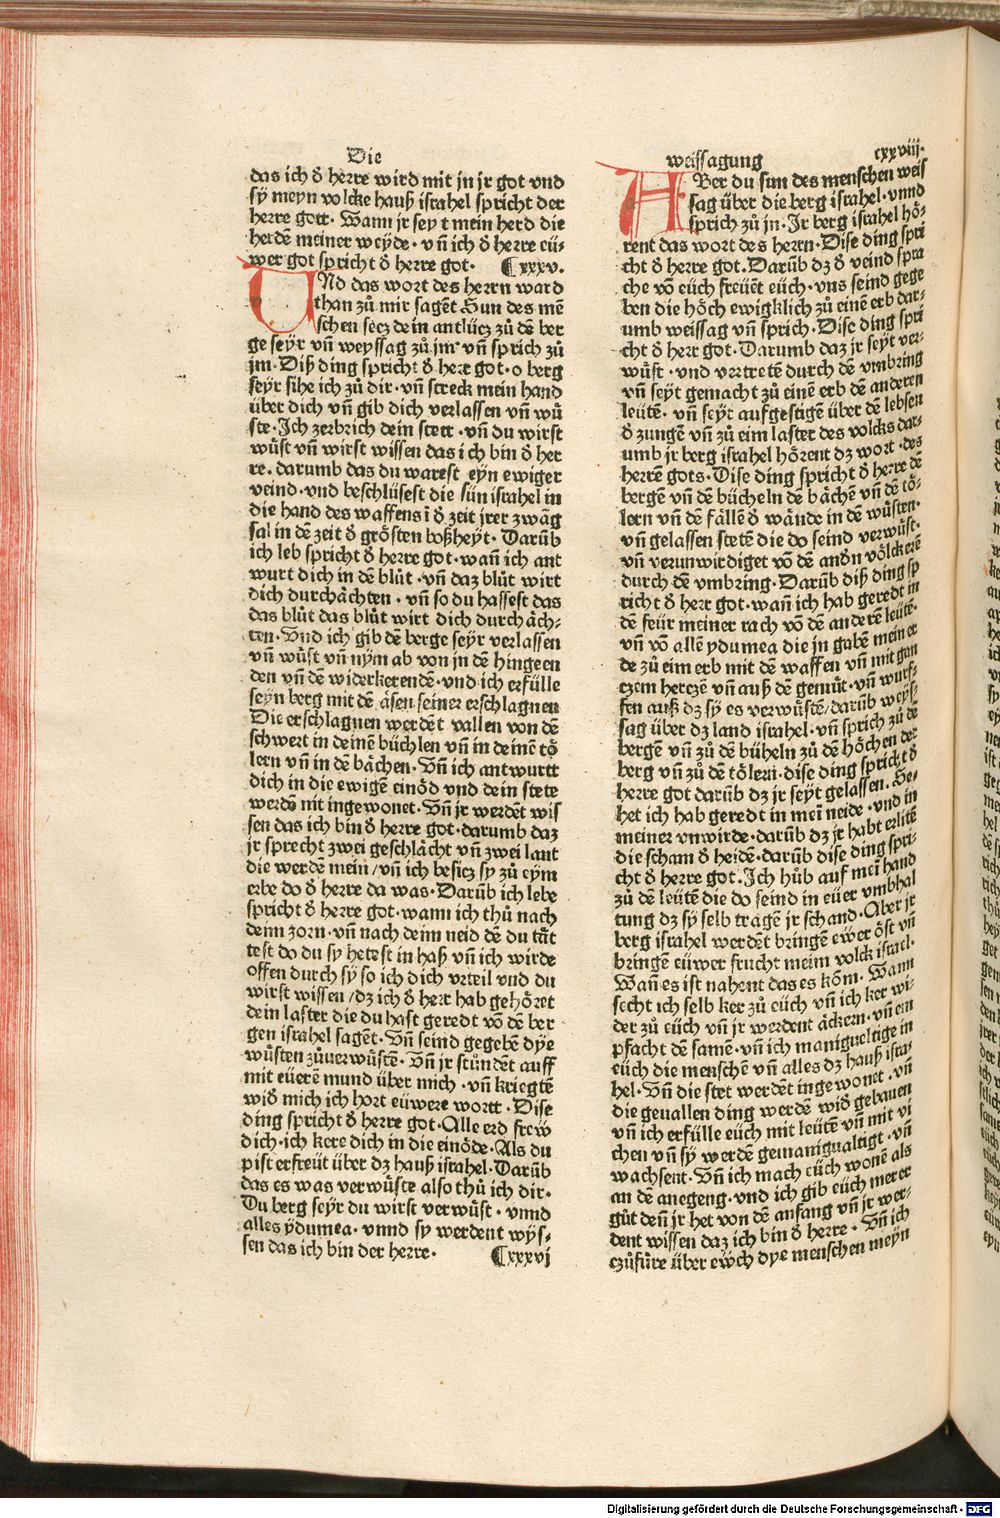 Die
das ich d̕ herre wird mit jn jr got vnd
sÿ meyn volcke hauß israhel spricht der
herre gott · Wann jr sey t mein herd die
herdē meiner weÿde · vñ ich d̕ herre eü-
wer got spricht d̕ herre got · ¶xxxv.
VNd das wort des herrn ward
than zů mir sagēt Sun des mē
schen secz dein antlücz zů dē ber
ge seyr vñ weyssag zů jm vñ sprich zů
jm · Diß ding spricht d̕ herr got · o berg
seyr sihe ich zů dir · vñ streck mein hand
über dich vñ gib dich verlassen vñ wů
ste · Ich zerbrich dein stett · vñ du wirst
wůst vñ wirst wissen das i ch bin d̕ her
re · darumb das du warest eyn ewiger
veind · vnd beschlüsest die sün israhel in
die hand des waffens ī d̕ zeit jrer zwāg
sal in dē zeit d̕ grösten boßheyt · Darūb
ich leb spricht d̕ herre got · wañ ich ant
wurt dich in dē blůt · vñ daz blůt wirt
dich durchächten · vñ so du hassest das
das blůt das blůt wirt dich durch äch-
ten · Vnd ich gib dē berge seyr verlassen
vñ wůst vñ nÿm ab von jn dē hingeen
den vñ dē widerkerendē · vnd ich erfülle
seyn berg mit dē äsen seiner erschlagnen
Die erschlagnen werdēt vallen von dē
schwert in deinē büchlen vñ in deinē tö
lern vñ in dē bächen · Vñ ich antwurtt
dich in die ewigē einöd vnd dein stete
werdē nit ingewonet · Vñ jr werdēt wis
sen das ich bin d̕ herre got · darumb daz
jr sprecht zwei geschlächt vñ zwei lant
die werdē mein / vñ ich besicz sy zů eym
erbe do d̕ herre da was · Darūb ich lebe
spricht d̕ herre got · wann ich thů nach
deim zorn · vñ nach deim neid dē du tät
test do du sy hetest in haß vñ ich wirde
offen durch sÿ so ich dich vrteil vnd du
wirst wissen / dz ich d̕ herr hab gehöret
dein laster die du hast geredt vō dē ber
gen israhel sagēt · Vñ seind gegebē dye
wůsten zůuerwůstē · Vñ jr stůndēt auff
mit eüerē mund über mich · vñ kriegtē
wid̕ mich ich hort eüwere wortt · Dise
ding spricht d̕ herre got · Alle erd frew
dich · ich kere dich in die einöde · Als du
pist erfreüt über dz hauß israhel · Darūb
das es was verwůste also thů ich dir ·
Du berg seyr du wirst verwůst · vnnd
alles ÿdumea · vnnd sy werdent wÿs-
sen das ich bin der herre · ¶xxxvi
weissagung cxxviii·
ABer du sun des menschen weis
sag über die berg israhel · vnnd
sprich zů jn · Ir berg israhel hö-
rent das wort des herrn · Dise ding spri
cht d̕ herre got · Darūb dz d̕ veind spra
che vō eüch freüet eüch · vns seind gege
ben die höch ewigklich zů einē erb dar-
umb weissag vñ sprich · Dise ding spri
cht d̕ herr got · Darumb daz jr seyt ver-
wůst · vnd vertretē durch dē vmbring
vñ seyt gemacht zů einē erb dē anderen
leütē · vñ seyt aufgestigē über dē lebsen
d̕ zungē vñ zů eim laster des volcks dar-
umb jr berg israhel hörent dz wort · des
herrē gots · Dise ding spricht d̕ herre dē
bergē vñ dē bücheln dē bächē vñ dē tö-
lern vñ dē fällē d̕ wände in dē wůsten ·
vñ gelassen stetē die do seind verwůst ·
vñ verunwirdiget vō dē and̕n völckerē
durch dē vmbring · Darūb diß ding sp
richt d̕ herr got · wañ ich hab geredt in
dē feür meiner rach vō dē anderē leütē ·
vñ vō allē ydumea die jn gabē mein er
de zů eim erb mit dē waffen vñ mit gan
czem herczē vñ auß dē gemüt · vñ wurf-
fen auß dz sÿ es verwůstē / darūb weys-
sag über dz land israhel · vñ sprich zů dē
bergē vñ zů dē büheln zů dē höchen der
berg vñ zů dē tölern · dise ding spricht d̕
herre got darūb dz jr seyt gelassen. Se-
het ich hab geredt in meī neide · vnd in
meiner vnwirde · darūb dz jr habt erlitē
die scham d̕ heidē · darūb dise ding spri-
cht d̕ herre got · Ich hůb auf meī hand
zů dē leütē die do seind in eüer vmbhal
tung dz sÿ selb tragē jr schand · Aber jr
berg israhel werdēt bringē ewer öst vñ
bringē eüwer frucht meim volck israel ·
Wañ es ist nahent das es köm · Wann
secht ich selb ker zů eüch vñ ich ker wi-
der zů eüch vñ jr werdent äckern · vñ ein
pfacht dē samē · vñ ich manigueltige in
eüch die menschē vñ alles dz hauß isra-
hel · Vñ die stet werdēt ingewonet · vñ
die geuallen ding werdē wid̕ gebauen
vñ ich erfülle eüch mit leütē vñ mit vi
chen vñ sy werdē gemanigualtigt · vñ
wachsent · Vñ ich mach eüch wonē als
an dē anegeng · vnd ich gib eüch merer
gůt deñ jr het von dē anfang vñ jr wer-
dent wissen daz ich bin d̕ herre · Vñ ich
czůfüre über ewch dye menschen meyn
Digitalisierung gefördert durch die Deutsche Forschungsgemeinschaft - DFG